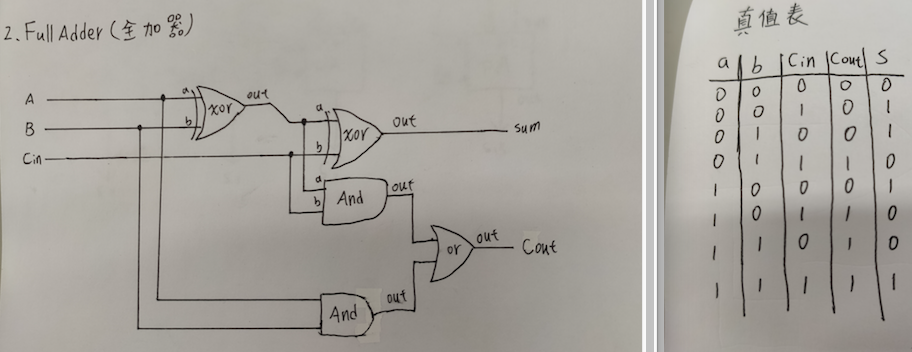 2. Full Adder (全加器)
A
B
Cin
a
b
xor
out
a
b
xor
out
sum
a
b
And
out
or
out
Cout
And
out
真值表
a b Cin Cout S
0 0 0 0 0
0 0 1 0 1
0 1 0 0 1
0 1 1 1 0
1 0 0 0 1
1 0 1 1 0
1 1 0 1 0
1 1 1 1 1